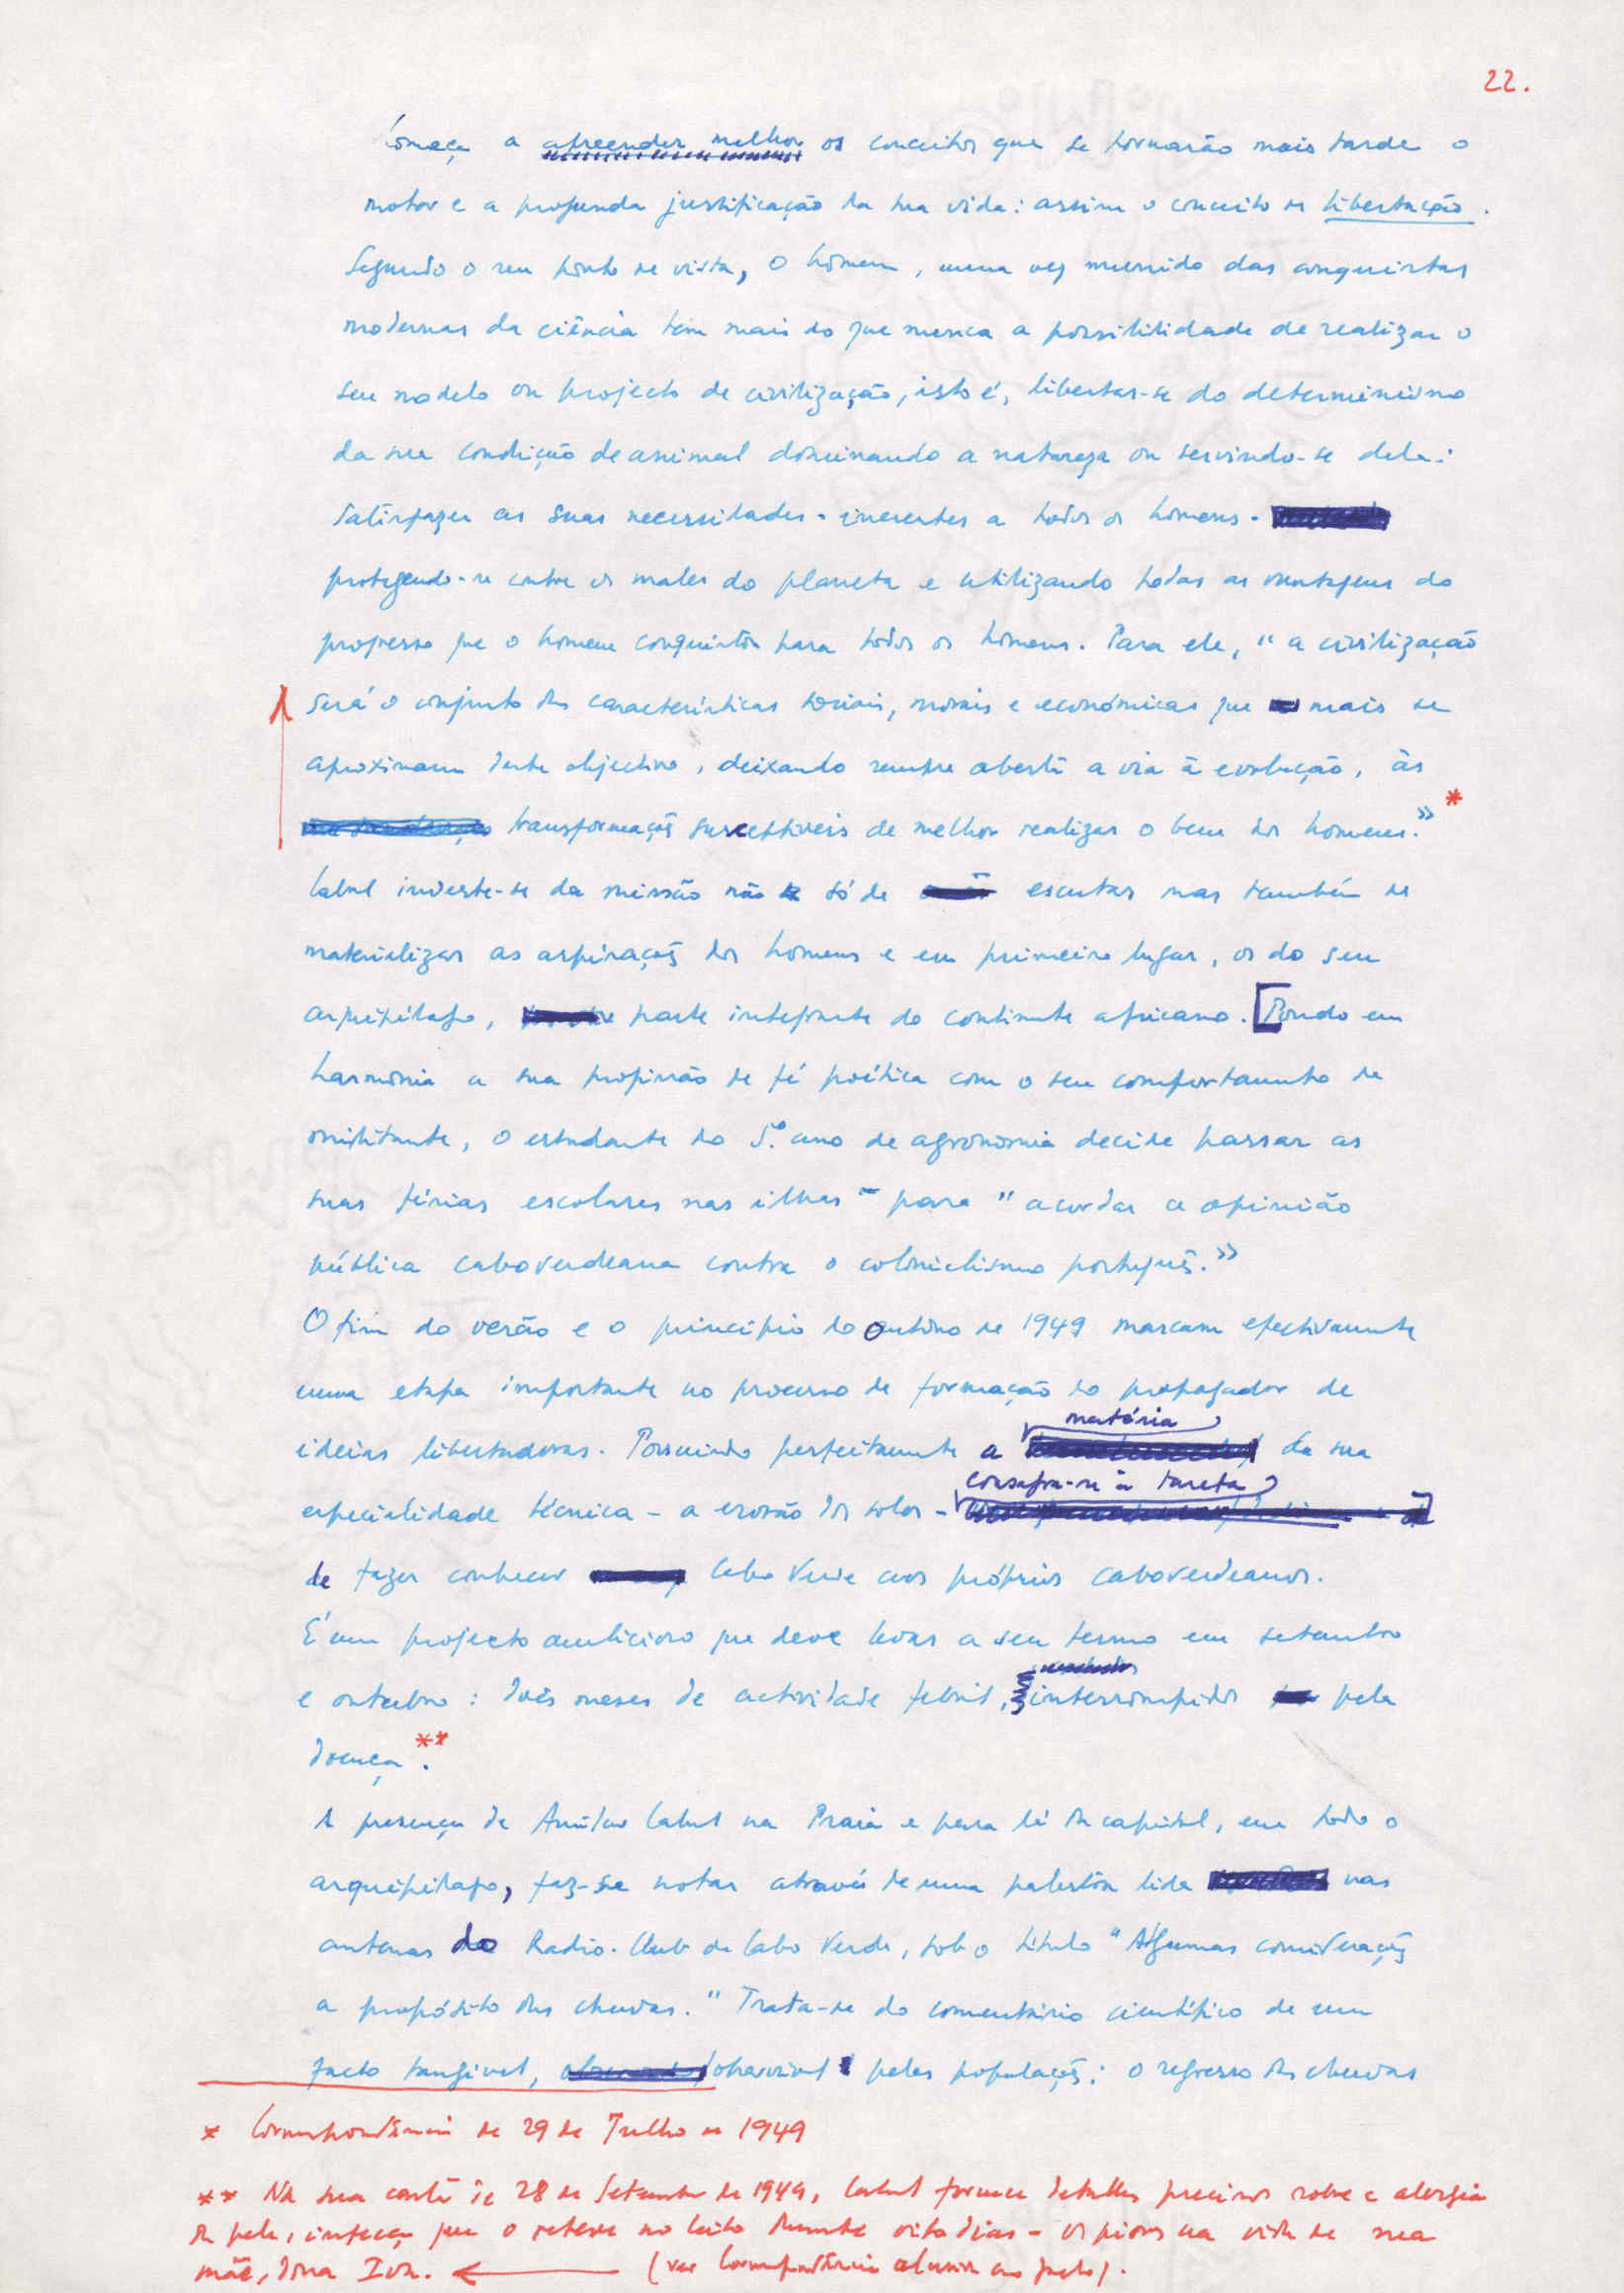 22.
Começa a apreender melhor os conceitos que se tornarão mais tarde o
motor e a profunda justificação da sua vida: assim o conceito de libertação.
Segundo o seu ponto de vista, o homem, uma vez munido das conquistas
modernas da ciência tem mais do que nunca a possibilidade de realizar o
seu modelo ou projecto de civilização, isto é, libertar-se do determinismo
da sua condição de animal dominando a natureza ou servindo-se dela:
Satisfazer as suas necessidades - inerentes a todos os homens -
protegendo-se contra os males do planeta e utilizando todas as vantagens do
progresso que o homem conquistou para todos os homens. Para ele, "a civilização
será o conjunto das características sociais, morais e económicas que mais se
aproximam deste objectivo, deixando sempre aberta a via à evolução, às
transformações susceptíveis de melhor realizar o bem dos homens.»*
Cabral investe-se da missão não só de escutar mas também de
materializar as aspirações dos homens e em primeiro lugar, os do seu
arquipélago, parte integrante do continente africano. [Pondo em
harmonia a sua profissão de fé poética com o seu comportamento de
militante, o estudante do 5.º ano de agronomia decide passar as
suas férias escolares nas ilhas - para "acordar a opinião
pública caboverdeana contra o colonialismo português.»
O fim do verão e o princípio do outono de 1949 marcam efectivamente
uma etapa importante no processo de formação do propagador de
ideias libertadoras. Possuindo perfeitamente a matéria da sua
especialidade técnica - a erosão dos solos - consagra-se à tarefa
de fazer conhecer Cabo Verde aos próprios caboverdeanos.
É um projecto ambicioso que deve levar a seu termo em setembro
e outubro: dois meses de actividade febril, interrompidos pela
doença.**
A presença de Amílcar Cabral na Praia e para lá da capital, em todo o
arquipélago, faz-se notar através de uma palestra lida nas
antenas do Radio-Club de Cabo Verde, sob o título "Algumas considerações
a propósito das chuvas." Trata-se do comentário científico de um
facto tangível, observável pelas populações: o regresso das chuvas
* Correspondência de 29 de Julho de 1949
** Na sua carta de 28 de Setembro de 1949, Cabral fornece detalhes precisos sobre a alergia
da pele, infecção que o reteve no leito durante oito dias - os piores na vida de sua
mãe, dona Iva. ← (ver Correspondência alusiva ao facto).